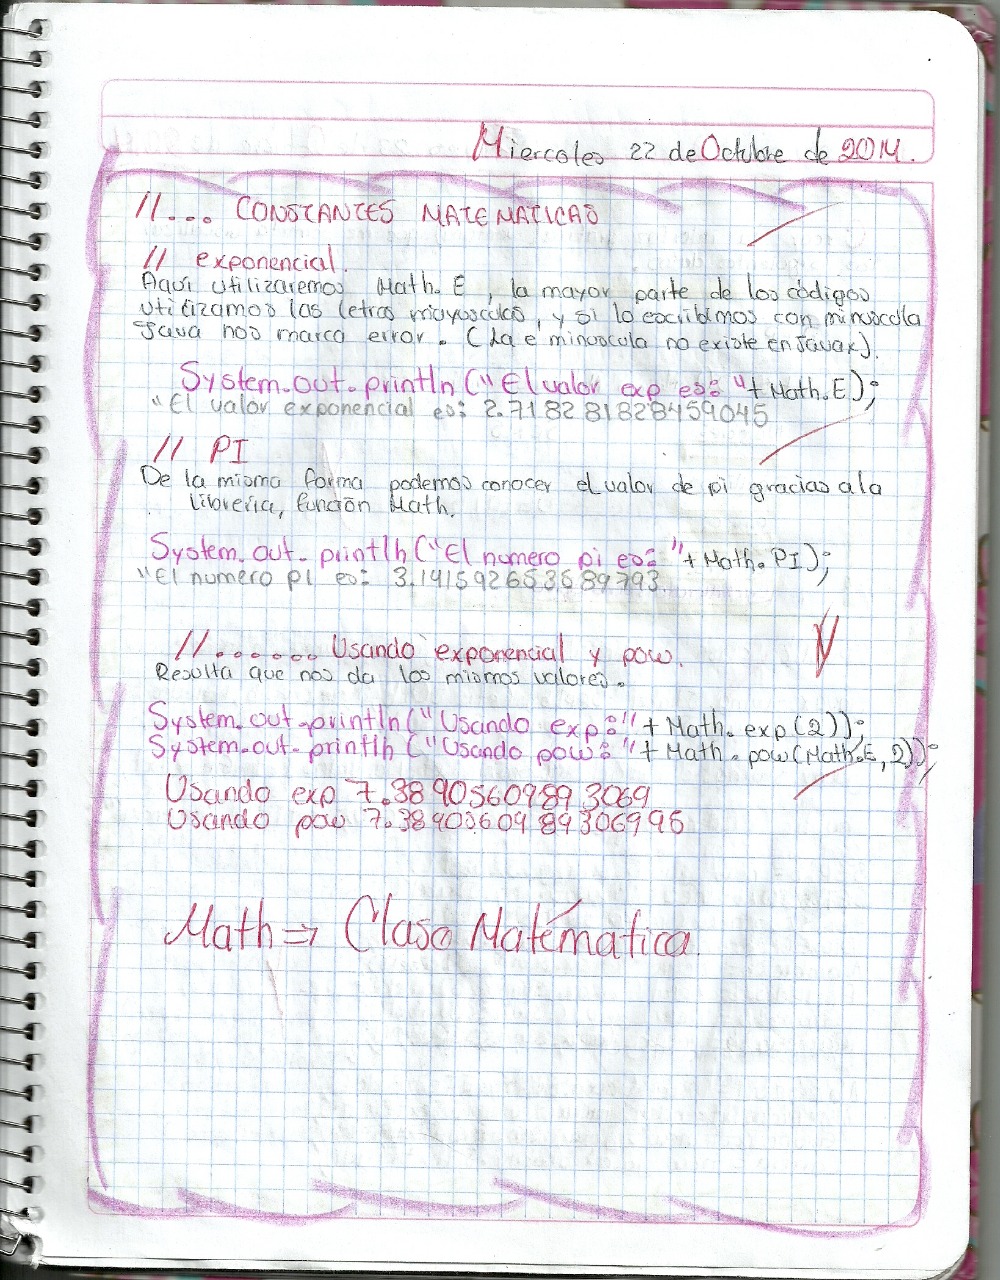 Miercoles 22 de Octubre de 2014.
//... CONSTANTES MATEMATICAS
// exponencial.
Aquí utilizaremos Math. E, la mayor parte de los códigos
utilizamos las letras mayusculas, y si lo escribimos con minuscula
Java nos marca error. (La e minuscula no existe en Javax).
System.out.println ("El valor exp es: "+ Math.E);
"El valor exponencial es: 2.718281828459045
// PI
De la misma forma podemos conocer el valor de pi gracias a la
libreria, función Math.
System.out.println ("El numero pi es: "+ Math.PI);
"El numero pi es: 3.141592653589793
//...... Usando exponencial y pow.
Resulta que nos da los mismos valores.
System.out.println("Usando exp:"+ Math.exp(2));
System.out.println ("Usando pow: "+ Math.pow(Math.E, 2));
Usando exp 7.38905609893069
Usando pow 7.3890560989306995
Math => Clase Matématica.